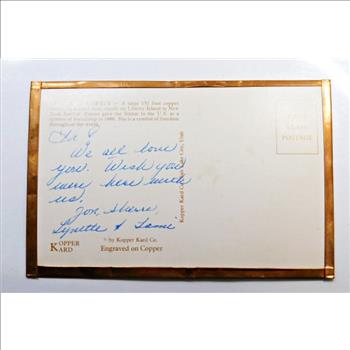 A large 151 foot copper
on Liberty Island in New
York Harbor. France gave the Statue to the U.S. as a
symbol of friendship in 1886. She is a symbol of freedom
throughout the world.
We all love
you. Wish you
were here with
us.
Joe, Sherri,
Lynette &
KOPPER
KARD
© by Kopper Kard Co.
Engraved on Copper
Kopper Kard
Utah
PLACE
STAMP
POSTAGE